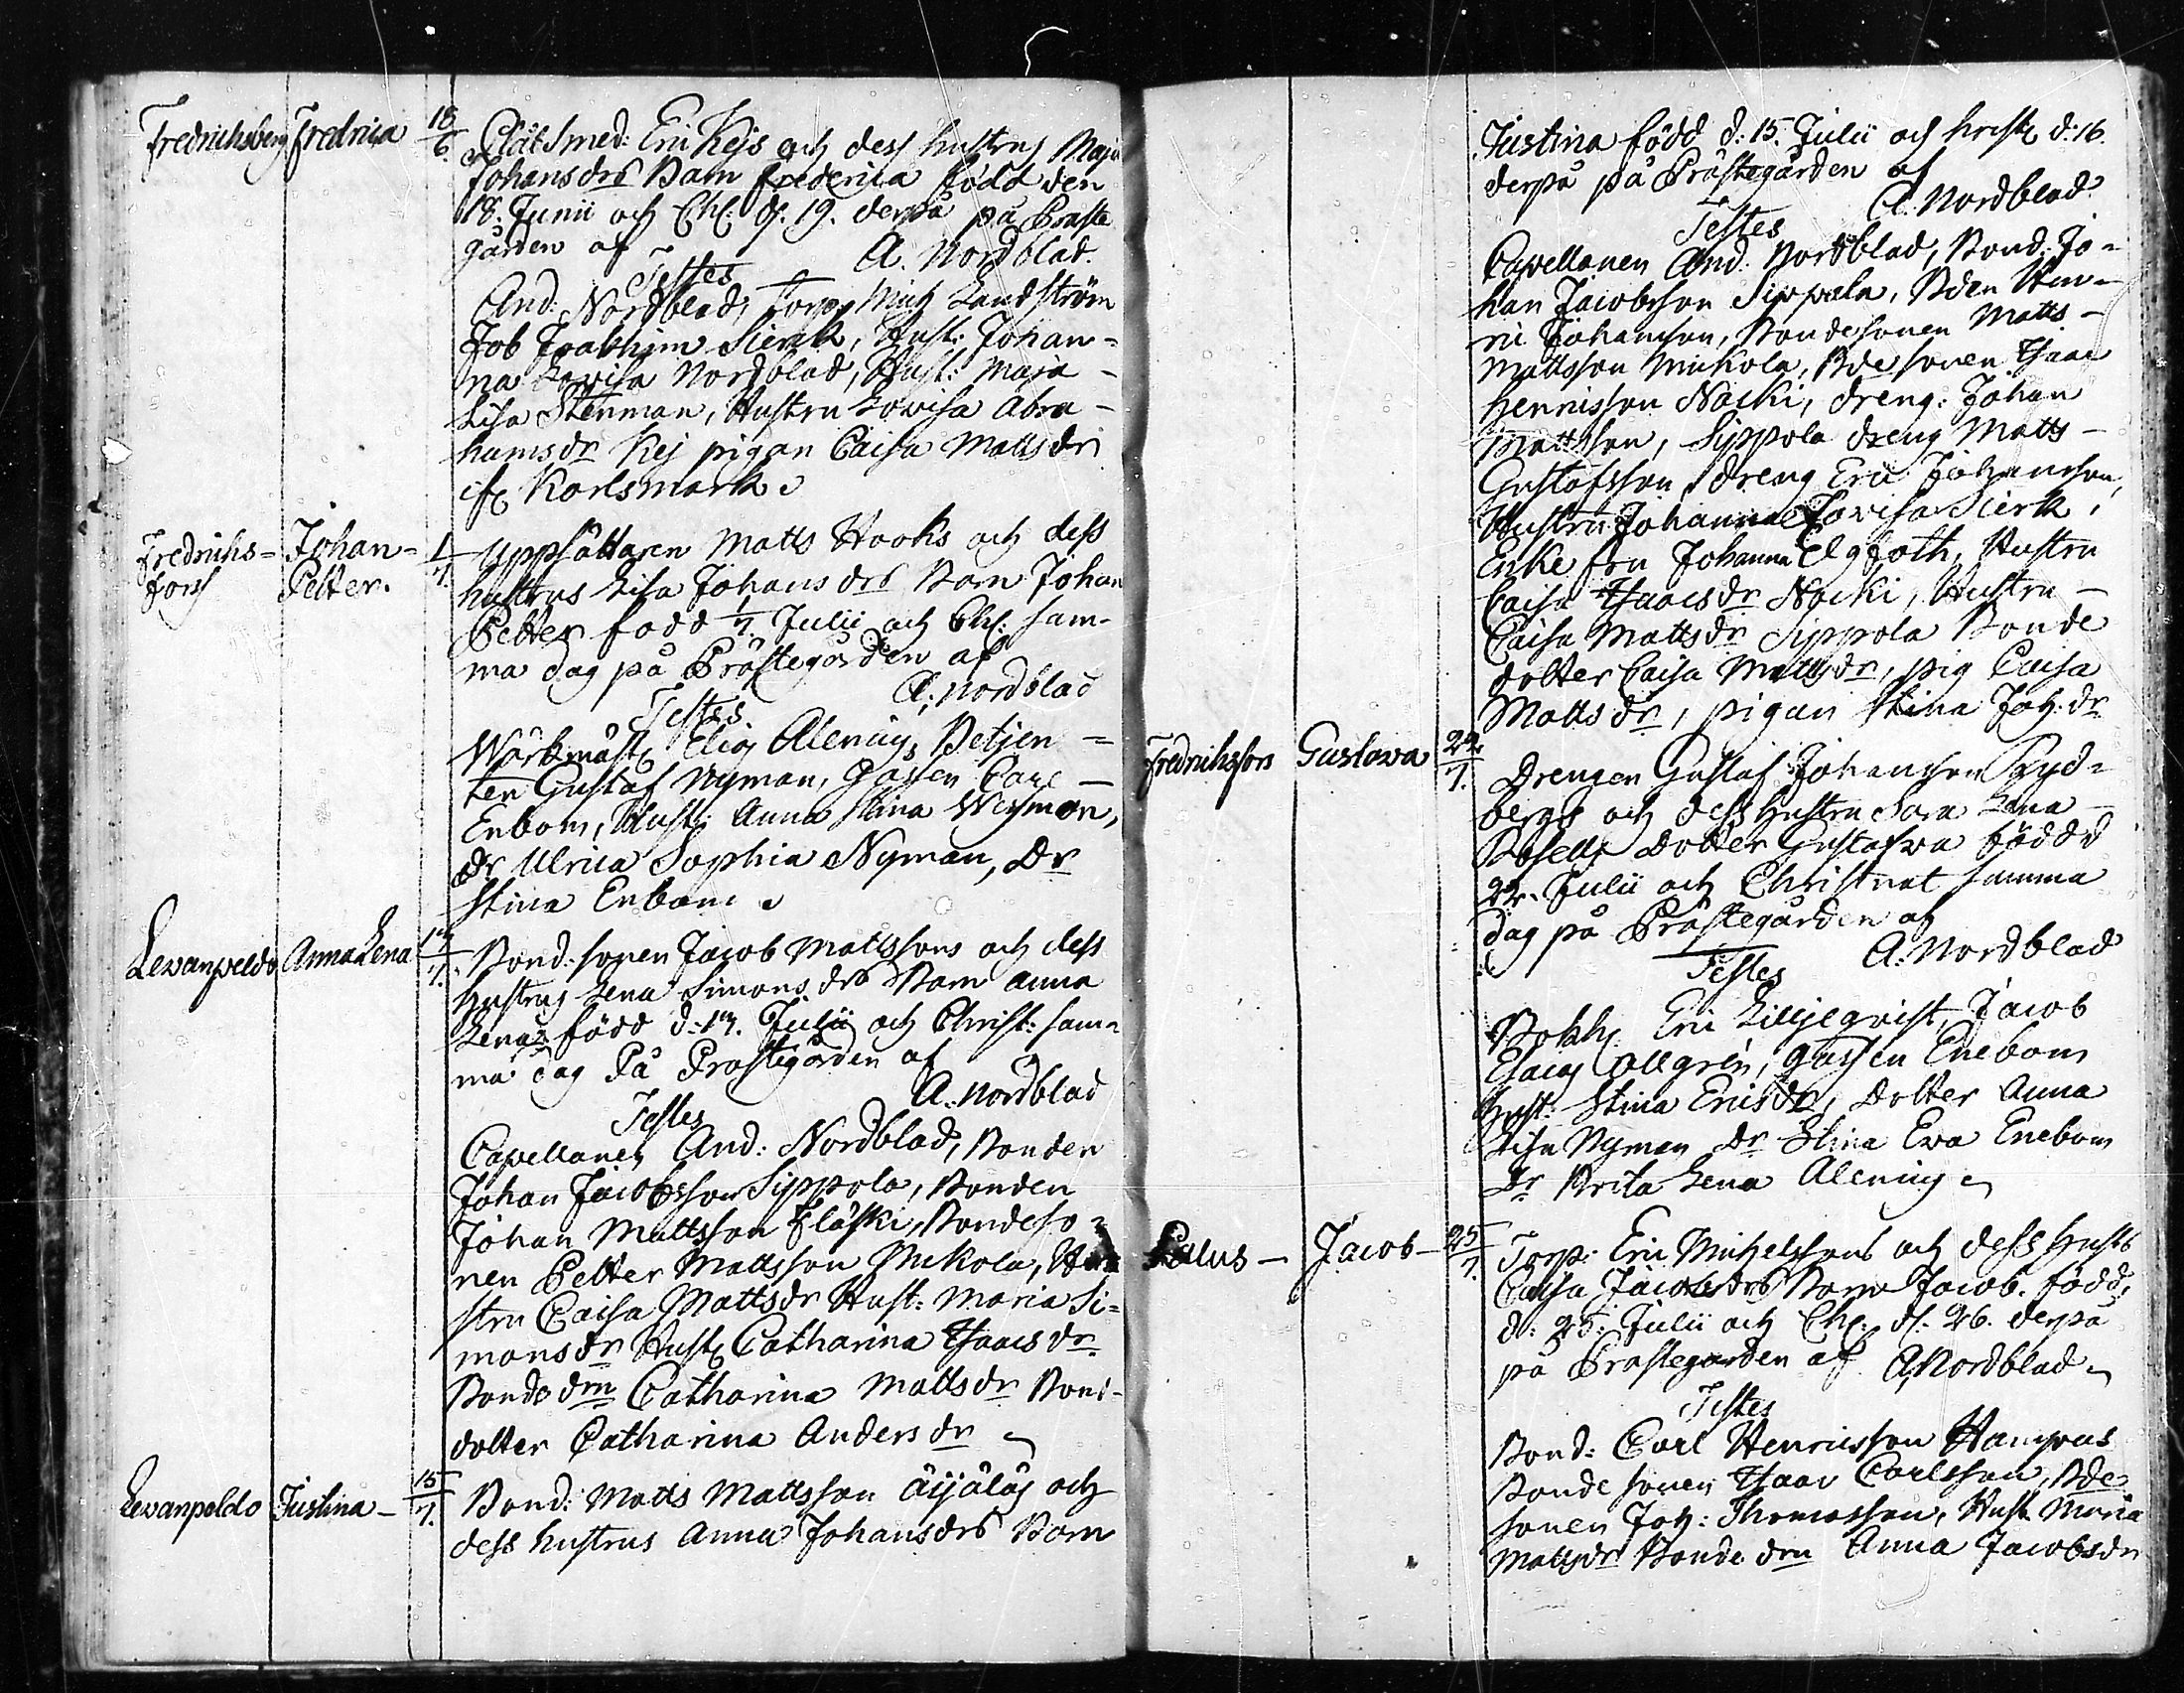 Fredrichsberg Fredrica 18/6 Plåtsmed: Eric Kejs och dess hustrus Maja
Johansdrs Barn Frederica född den
18. Junii och Chr: d. 19. derpå på Præste
gården af A. Nordblad.
Testes
And: Nordblad, Torp: Mich Landström
Job Joakhim Sierck, Hust: Johan=
na Lovisa Nordblad, Hust: Maja
Lisa Stenman, Hustru Lovisa Abra-
hamsdr Kej pigan Caisa Mattsdr
Karlsmark
Fredrichs= Johan= 1/7 Uppsättaren Matts Hooks och dess
fors Petter. hustrus Lisa Johansdrs Barn Johan
Petter född 1/7. Julii och Chr: sam-
ma dag på Prästegården af
A: Nordblad
Testes.
Wärkmäst Elias Alenius, Betjen=
ten Gustaf Nyman, Gossen Carl
Enbom, Hust: Anna Stina Weyman,
Dr Ulrica Sophia Nyman, Dr
Stina Enbom
Lewanpeldo Anna Lena 14/7. Bond: sonen Jacob Mattssons och dess
hustrus Lena Simonsdrs Barn Anna
Lena född d: 14. Julii och Christ: sam=
ma dag På Prästegården af
A. Nordblad
Testes
Capellanen And: Nordblad, Bonden
Johan Jacobsson Sippola, Bonden
Johan Mattsson Kläski, Bondeso=
nen Petter Mattsson Mickola, Hu
stru Caisa Mattsdr Hust: Maria Si=
monsdr Hust Catharina Isaacsdr
Bonde drn Catharina Mattsdr Bond-
dotter Catharina Andersdr
Lewanpeldo Justina - 15/7. Bond: Matts Mattsson Äijäläs och
dess hustrus Anna Johansdrs Barn
Justina född d: 15. Julii och christ d: 16.
derpå på Prästegården af
A: Nordblad
Testes
Capellanen And: Nordblad, Bond: Jo=
han Jacobsson Sippola, Bden Hen-
ric Johansson, Bondesonen Matts-
Mattsson Mickola, Bde sonen Isaac
Henricsson Näcki, dreng: Johan
Mattsson, Sippola dreng Matts-
Gustafsson, dreng Eric Johansson,
Hustru Johanna Lovisa Sierck,
Enke fru Johanna Elgfoth, Hustru
Caisa Isaacsdr Näcki, Hustru-
Caisa Mattsdr Sippola Bonde
dotter Caisa Mattsdr, pig Caisa
Mattsdr, pigan Stina Joh:dr
Fredrichsfors Gustava 22/7. Drengen Gustaf Johansson Ryd=
bergs och dess hustru Sara Lena
Rosells dotter Gustafwa född d
22. Julii och Christnat samma
dag på Prästegården af
A. Nordblad
Testes
Bokh: Eric Liljeqvist, Jacob
Esaias Allgrén, Gossen Enebom
Hust: Stina Ericsdr, Dotter Anna
Lisa Nyman Dr Stina Ewa Enebom
Dr Brita Lena Alenius
Lalus - Jacob - 25/7. Torp: Eric Michelssons och dess Husts
Caisa Jacobsdrs Barn Jacob. född
d: 25. Julii och Chr: d. 26. derpå
på Prästegården af A. Nordblad
Testes
Bond: Carl Henricsson Hampus
Bonde sonen Isaac Carlsson, Bde
sonen Joh: Thomasson, Hust Maria
Mattsdr Bonde drn Anna Jacobsdr